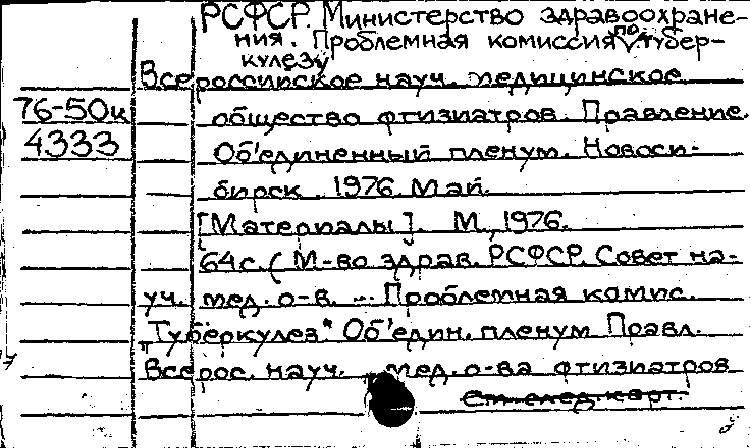 РСФСР. Министерство здравоохране-
ния. Проблемная комиссия по тубер-
кулезу
Всероссийское науч. медицинское
76-50к общество фтизиатров. Правление.
4333 Об'единенный пленум. Новоси-
бирск. 1976. Май.
[Материалы]. М., 1976.
64с. (М-во здрав. РСФСР. Совет на-
уч. мед. о-в. -- Проблемная комис.
„Туберкулез" Об'един. пленум Правл.
Всерос. науч. мед. о-ва фтизиатров
См. след. карт.